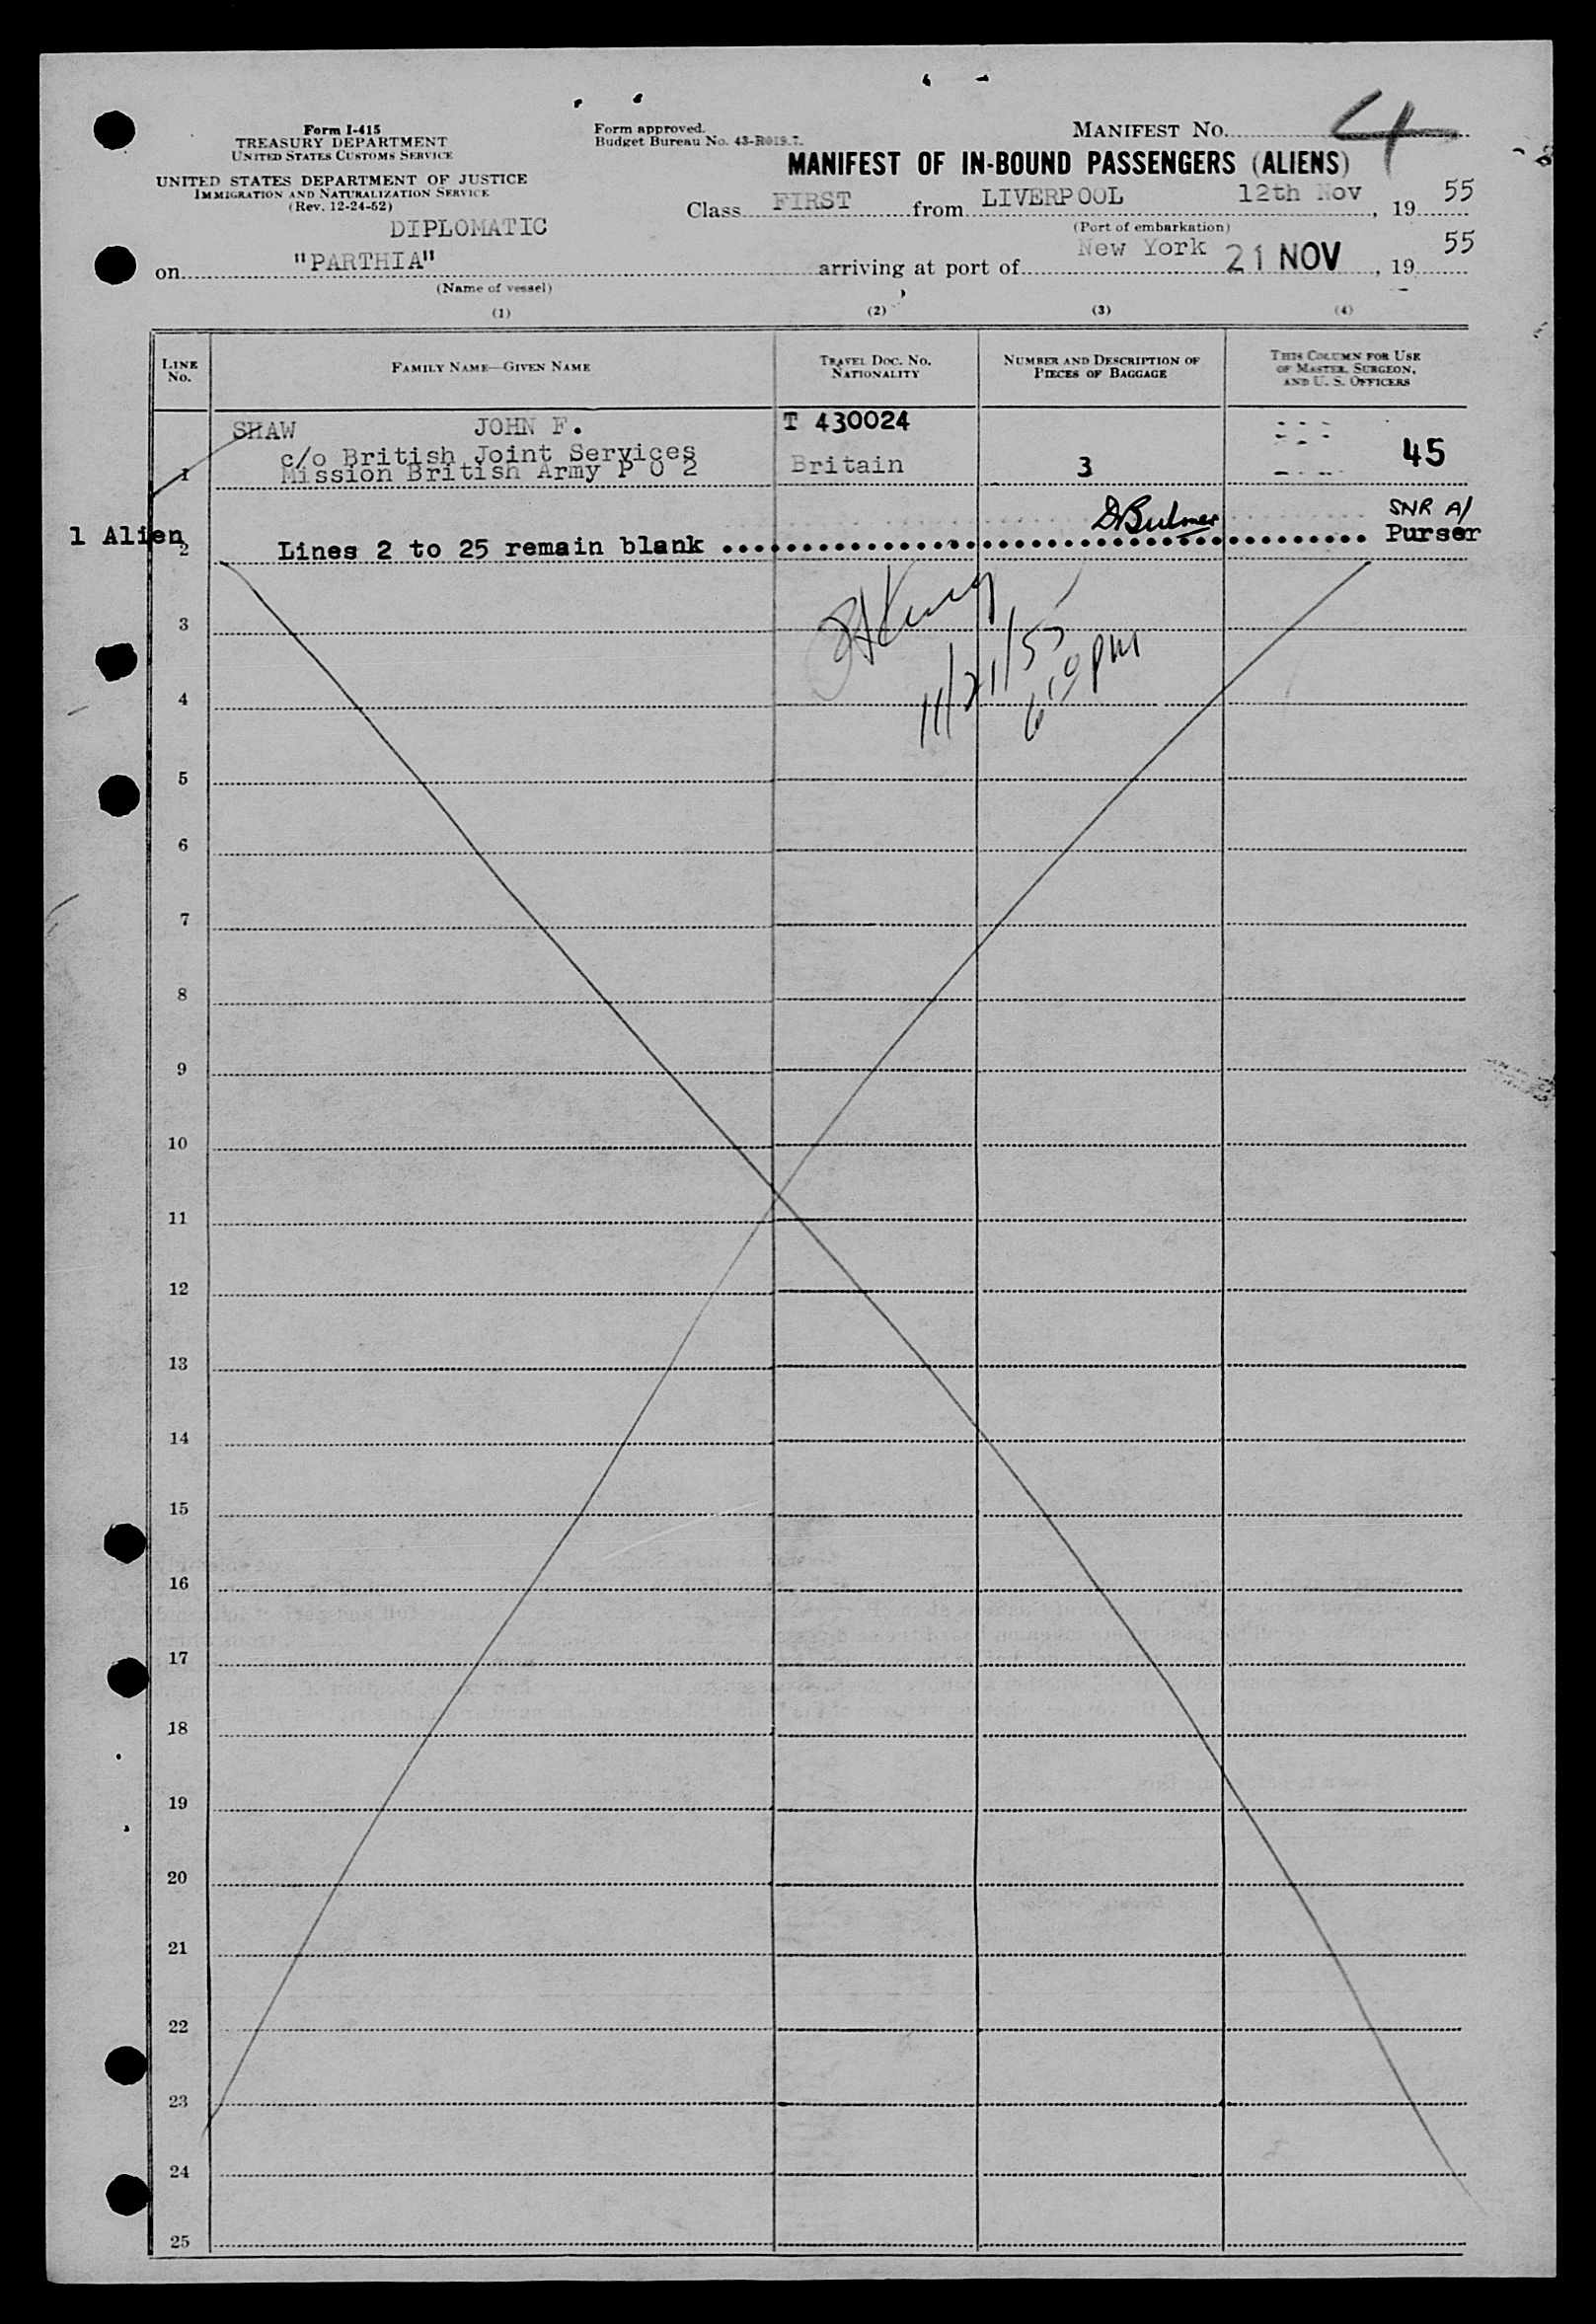 Form I-415
TREASURY DEPARTMENT
UNITED STATES CUSTOMS SERVICE
UNITED STATES DEPARTMENT OF JUSTICE
IMMIGRATION AND NATURALIZATION SERVICE
(Rev. 12-24-52)
Form approved.
Budget Bureau No. 43-R019.7.
MANIFEST NO. 4
MANIFEST OF IN-BOUND PASSENGERS (ALIENS)
Class FIRST from LIVERPOOL 12th Nov, 1955
(Port of embarkation)
DIPLOMATIC
on "PARTHIA" arriving at port of New York 21 NOV, 1955
(Name of vessel)
(1) (2) (3) (4)
LINE No.
FAMILY NAME—GIVEN NAME
TRAVEL DOC. NO. NATIONALITY
NUMBER AND DESCRIPTION OF PIECES OF BAGGAGE
THIS COLUMN FOR USE OF MASTER, SURGEON, AND U. S. OFFICERS
SHAW JOHN F. T 430024
c/o British Joint Services
1 Mission British Army P O 2 Britain 3 45
DBulmer SNR A/
1 Alien 2 Lines 2 to 25 remain blank Purser
3
11/21/55
4
6 10 PM
5
6
7
8
9
10
11
12
13
14
15
16
17
18
19
20
21
22
23
24
25